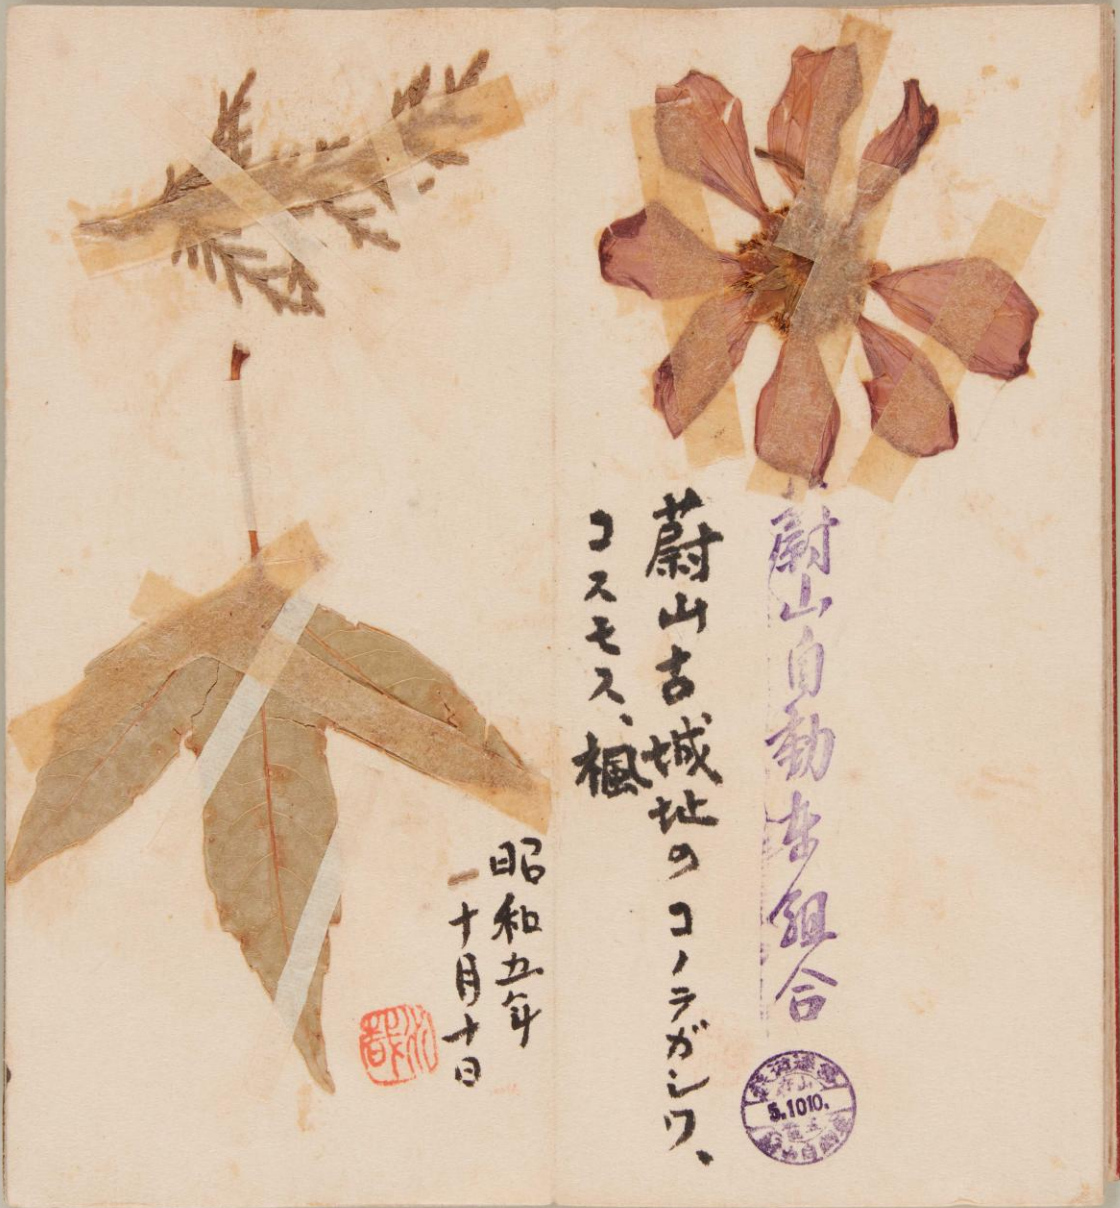 蔚山自動車組合
5.10 10.
蔚山古城址のコノテガシワ、
コスモス、楓
昭和五年
十月十日